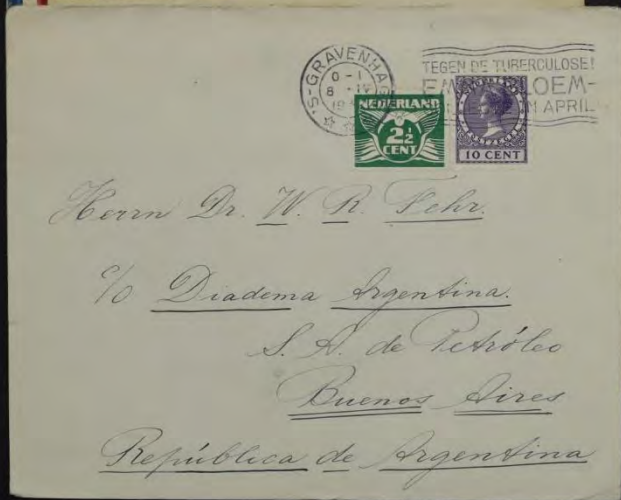 'S-GRAVENHAGE
0-1
8 IV
19
TEGEN DE TUBERCULOSE!
EMMABLOEM-
APRIL
NEDERLAND
2½
CENT
10 CENT
Herrn Dr. W. R. Fehr.
c/o Diadema Argentina.
S. A. de Petróleo
Buenos Aires
República de Argentina